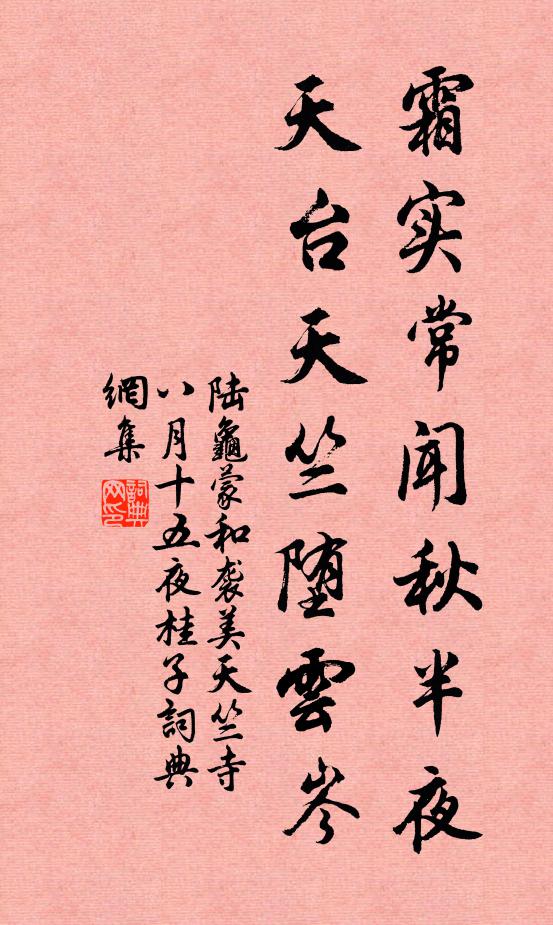 霜实常闻秋半夜
天台天竺堕雲岑
陆龜蒙和袭美天竺寺
八月十五夜桂子詞典
網集
詞典网印